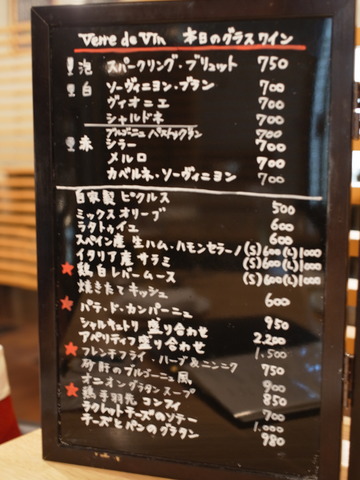 Verre de Vin 本日のグラスワイン
泡 スパークリング・ブリュット 750
白 ソーヴィニヨン・ブラン 700
ヴィオニエ 700
シャルドネ 700
ブルゴーニュ 700
赤 シラー 700
メルロ 700
カベルネ・ソーヴィニヨン 700
自家製 ピクルス 500
ミックス オリーブ 600
ラタトゥイユ 600
スペイン産 生ハム・ハモンセラーノ (S)600 (L)1000
イタリア産 サラミ (S)600 (L)1000
鶏白レバームース
焼きたてキッシュ 600
パテ・ド・カンパーニュ 950
シャルキュトリ 盛り合わせ 2,200
アペリティフ 盛り合わせ 1,500
フレンチフライ・ハーブ&ニンニク 750
砂肝のブルゴーニュ風 900
オニオングラタンスープ 850
鶏手羽先 コンフィ 700
ラクレットチーズのソテー 1,000
チーズとパンのグラタン 980